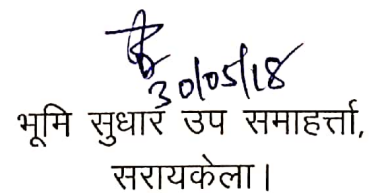 30/05/18
भूमि सुधार उप समाहर्त्ता,
सरायकेला।